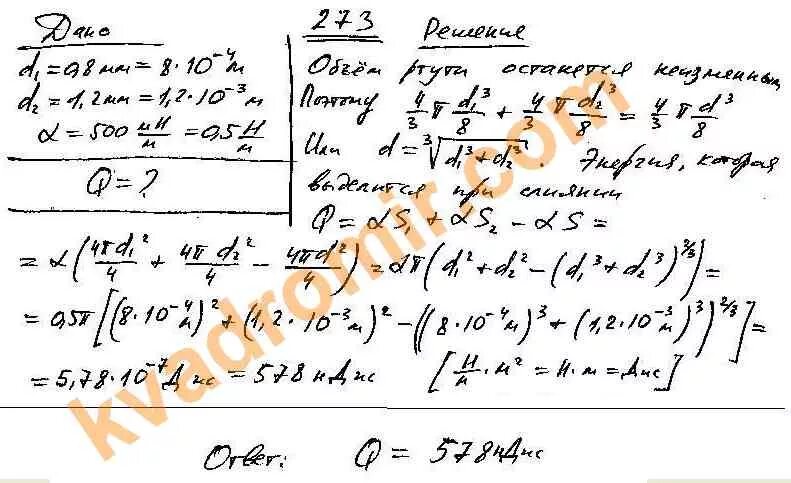 273
Дано
d₁ = 0,8 мм = 8·10⁻⁴ м
d₂ = 1,2 мм = 1,2·10⁻³ м
α = 500 мН/м = 0,5 Н/м
Q = ?
Решение
Объём ртути останется неизменным
Поэтому 4/3 π d₁³/8 + 4/3 π d₂³/8 = 4/3 π d³/8
Или d = ³√(d₁³ + d₂³). Энергия, которая
выделится при слиянии
Q = αS₁ + αS₂ − αS =
= α(4πd₁²/4 + 4πd₂²/4 − 4πd²/4) = απ(d₁² + d₂² − (d₁³ + d₂³)^(2/3)) =
= 0,5π[(8·10⁻⁴ м)² + (1,2·10⁻³ м)² − ((8·10⁻⁴ м)³ + (1,2·10⁻³ м)³)^(2/3)] =
= 5,78·10⁻⁷ Дж = 578 нДж [Н/м · м² = Н·м = Дж]
Ответ: Q = 578 нДж
kvadromir.com